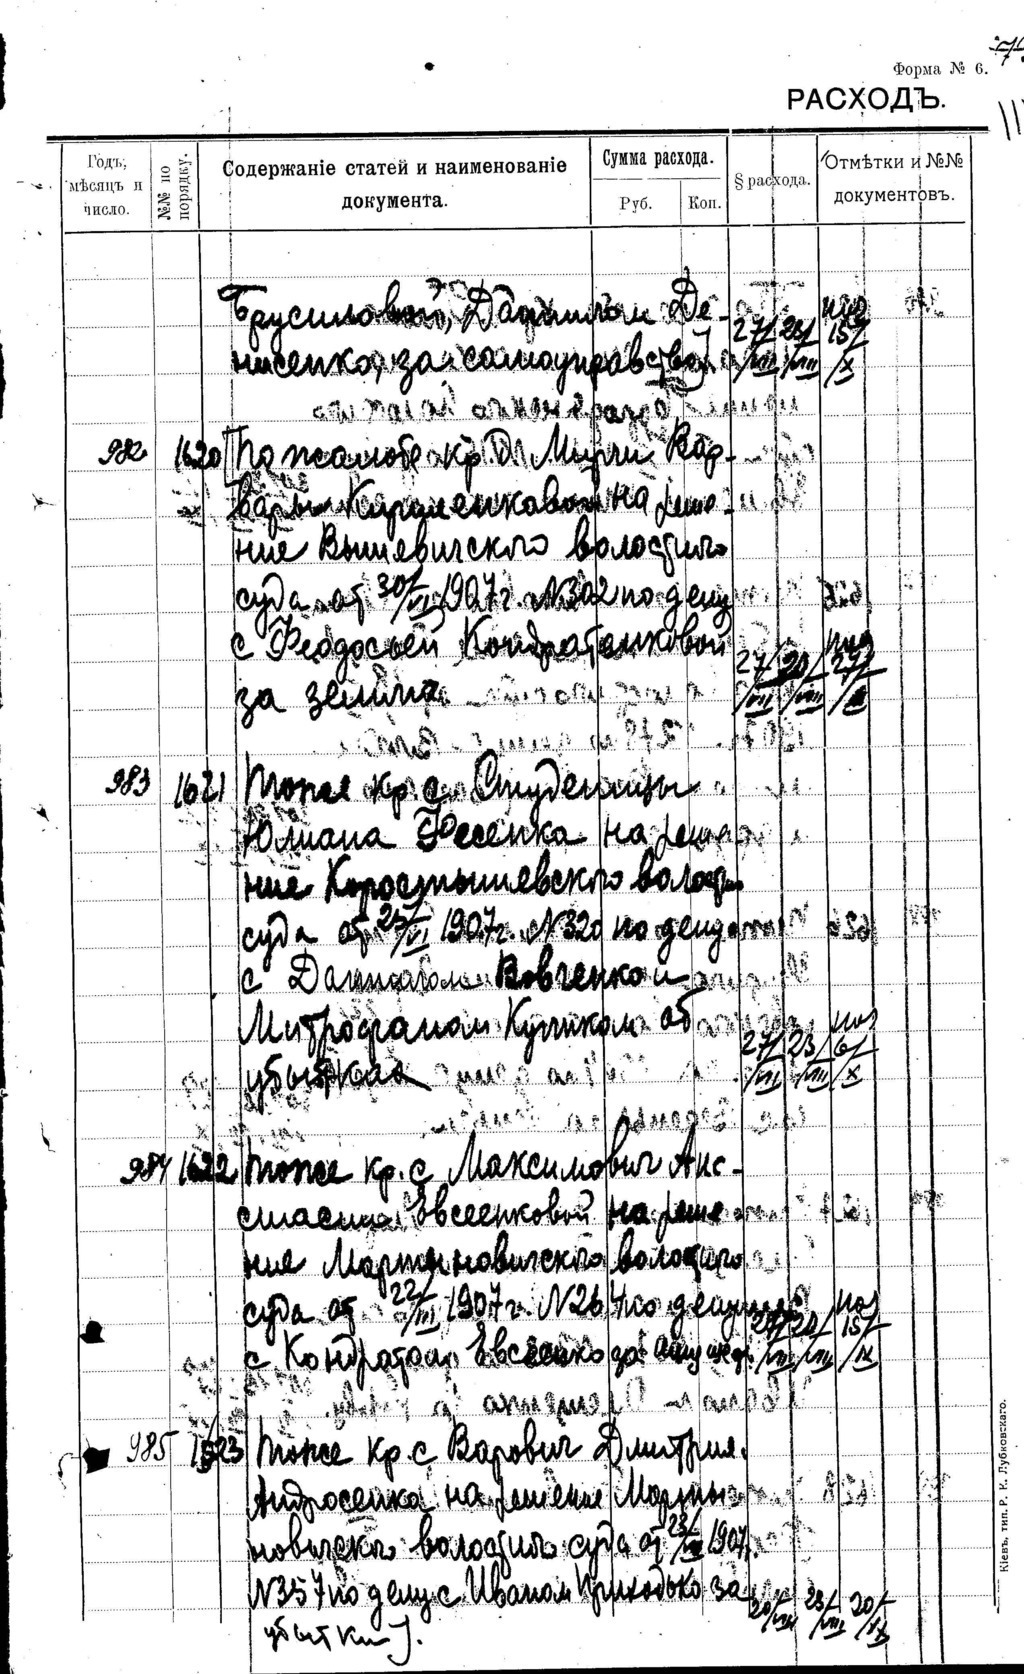 Форма № 6.
РАСХОДЪ.
Годъ, мѣсяцъ и число.
№№ по порядку.
Содержаніе статей и наименованіе документа.
Сумма расхода.
Руб.
Коп.
§ расхода.
Отмѣтки и №№ документовъ.
Брусиловой, Даниилом Де-
нисенко, за самоуправство
27/VII 23/VIII 15/X
982 1620 По жалобе кр. д. Мирчи Вар-
вары Кириленковой на реше-
ние Вышевичского волостного
суда от 30/VI 1907 г. N 302 по делу
с Феодосьей Кондратенковой
за землю
27/VII 20/VIII 27/
983 1621 тоже кр. с. Студеницы
Юлиана Фесенка на реше
ние Коростышевского волостн
суда от 25/VI 1907 г. N 320 по делу
с Вовченко и
Митрофаном Куликом об
убытках
27/VII 23/VIII 6/X
984 1622 тоже кр. с. Максимович Анс-
тасии Евсеенковой на реше
ние Мартыновичского волостного
суда от 22/VII 1907 г. N 264 по делу
с Кондратом Евсеенко за
20/VIII 15/IX
985 1623 тоже кр. с. Варович Дмитрия
Андросенка на решение Марты
новичского волостного суда от 1907
N 357 по делу с Иваном Приходько за
20/VIII 23/VIII 20/IX
убытки).
Кіевъ, тип. Р. К. Лубковскаго.